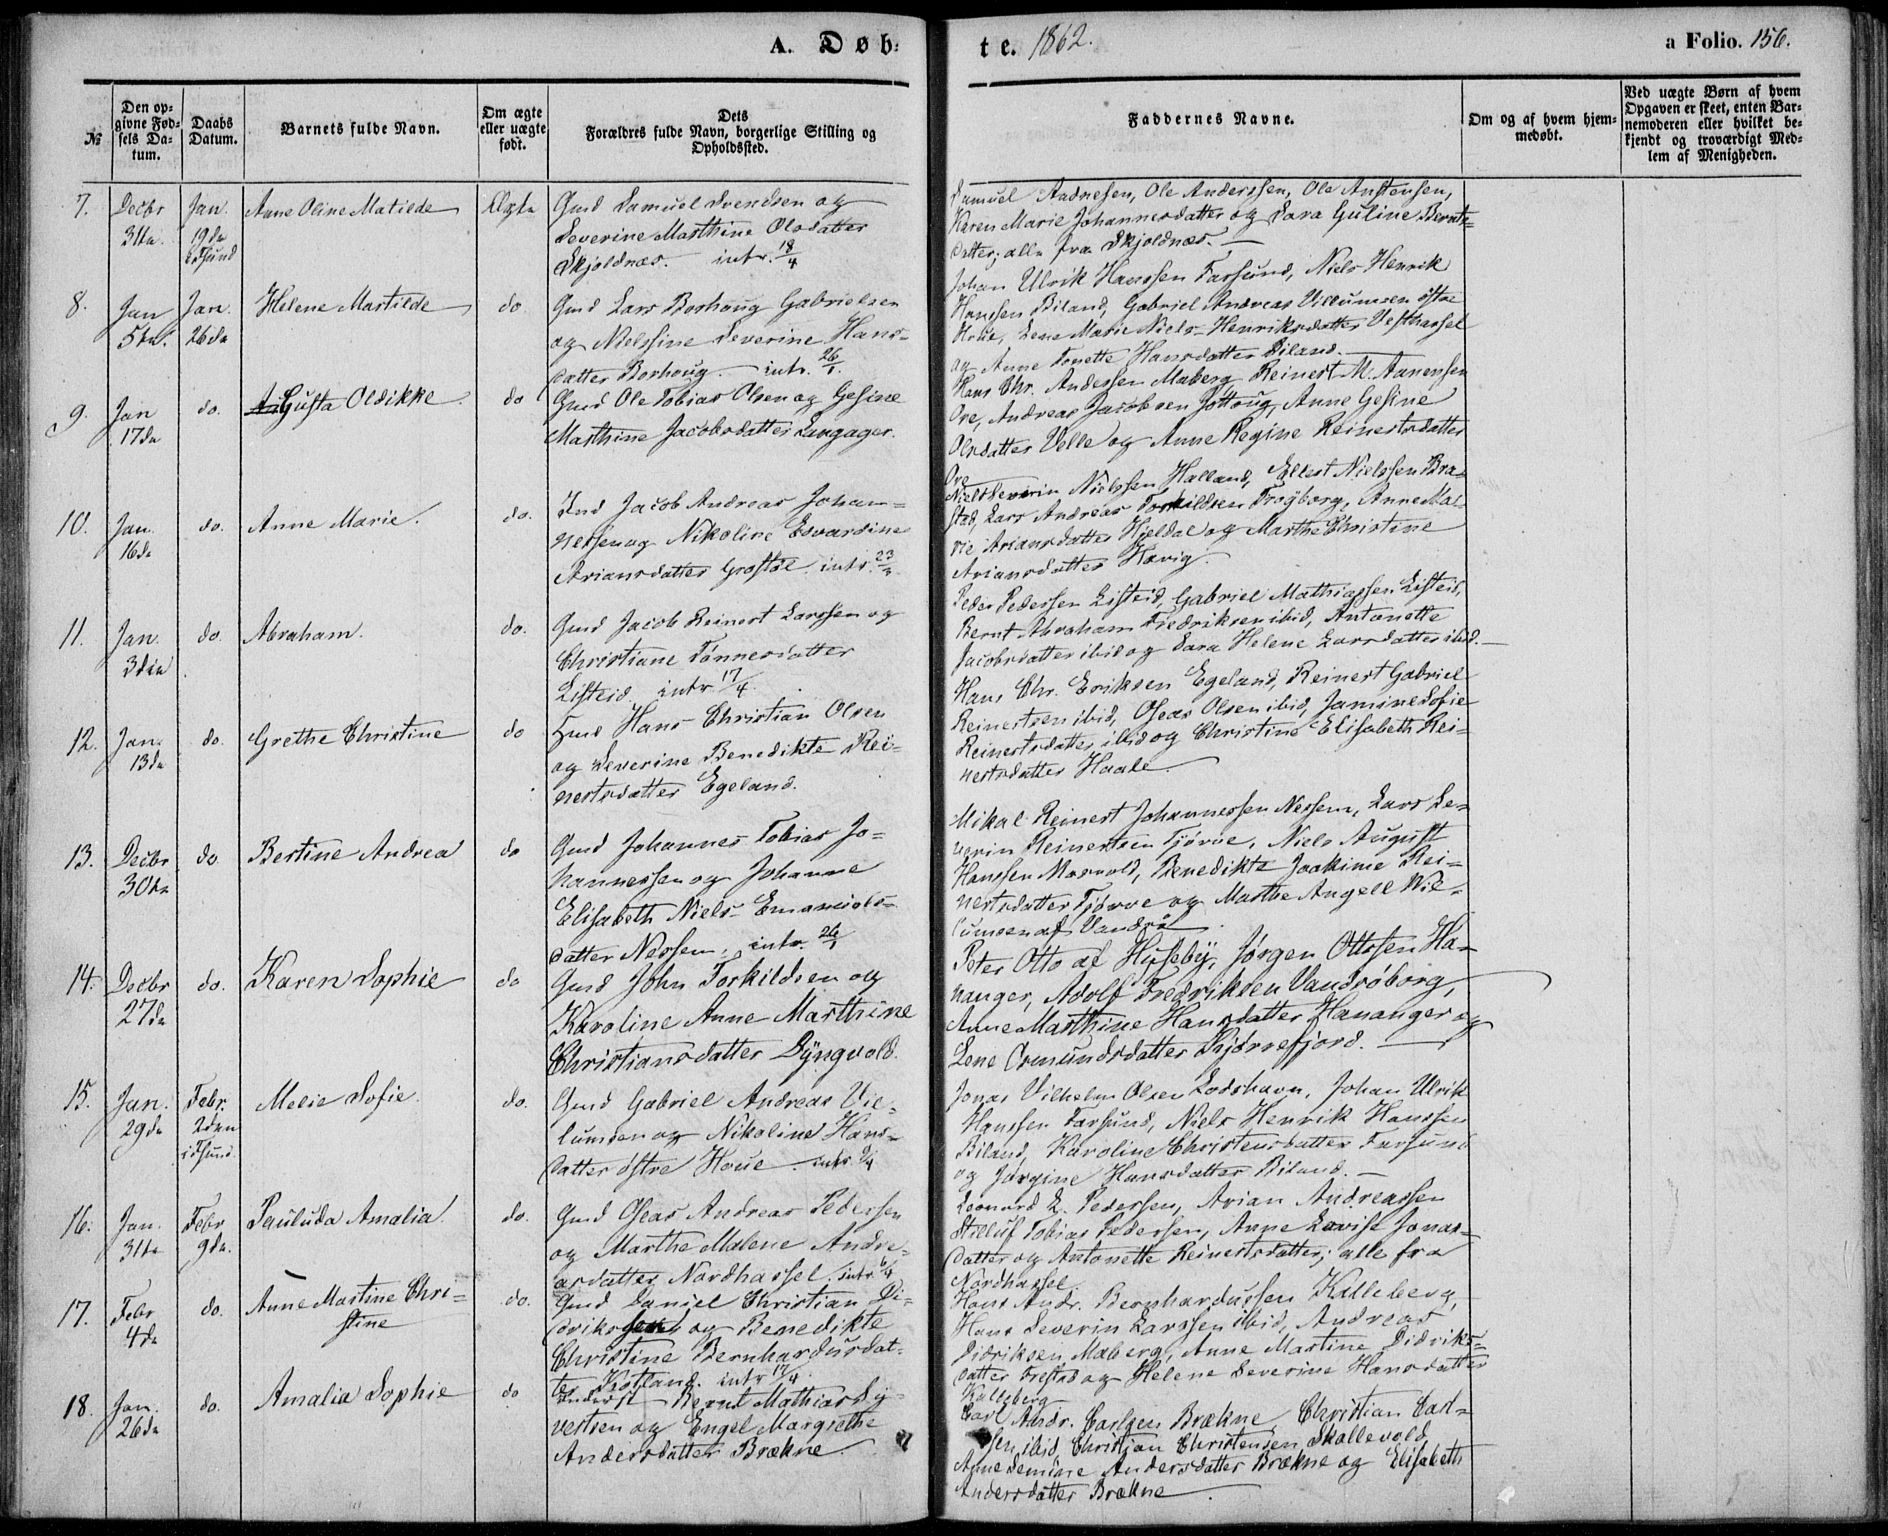 A. Døb-
te. 1862.
a Folio. 156.
№
Den op-
givne Fød-
sels Da-
tum.
Daabs
Datum.
Barnets fulde Navn.
Om ægte
eller uægte
født.
Dets
Forældres fulde Navn, borgerlige Stilling og
Opholdssted.
Faddernes Navne.
Om og af hvem hjem-
medøbt.
Ved uægte Børn af hvem
Opgaven er skeet, enten Bar-
nemoderen eller hvilket be-
kjendt og troværdigt Med-
lem af Menigheden.
7.
Decbr
31te.
Jan.
19de
Anne Oline Matilde
Ægte
Gmd Samuel Svendsen og
Severine Marthine Olsdatter
Skjoldnæs. intr. 18/4
Samuel Andresen, Ole Anderssen, Ole Anstensen,
Karen Marie Johannesdatter og Sara Guline Bernts-
datter, alle fra Skjoldnæs.
8.
Jan
5te.
Jan.
26de
Helene Martilde
do
Gmd Lars Borhoug Gabrielsen
og Nielssine Severine Hans-
datter Borhoug. intr. 26/1.
Johan Ulrik Hanssen Farsund, Niels Henrik
Hanssen Biland, Gabriel Andreas Villumsen østre
Houe, Lene Marie Niels-Henriksdatter Vesthassel
og Anne Tonette Hansdatter Biland.
9.
Jan
17de
do.
Gusta Oldikke
do
Gmd Ole Tobias Olsen og Gesine
Marthine Jacobsdatter Langager.
Hans Chr. Andersen Maberg Reinert M. Aanensen
Ore, Andreas Jacobsen Jøttoug, Anne Gesine
Olsdatter Velle og Anne Regine Reinertsdatter
Ore
10.
Jan.
16de
do.
Anne Marie.
do.
Ind Jacob Andreas Johan-
nessen og Nikoline Edvardine
Ariansdatter Grostøl. intr. 23/
Niels Severin Nielssen Halland, Ellert Nielssen Bra-
stad, Lars Andreas Torkildsen Frøyborg, Anne Ma-
rie Ariansdatter Hjeldal og Marthe Christine
Ariansdatter Hævig.
11.
Jan.
3die
do.
Abraham.
do.
Gmd Jacob Reinert Larssen og
Christiane Tønnesdatter
Listeid. intr. 17/4.
Peder Pedersen Listeid, Gabriel Mathiassen Listeid,
Bernt Abraham Fredriksen ibid, Antonette
Jacobsdatter ibid og Sara Helene Larsdatter ibid.
12.
Jan.
13de
do.
Grethe Christine
do
Gmd Hans Christian Olsen
og Severine Benedikte Rei-
nertsdatter Egeland.
Hans Chr. Eriksen Egeland, Reinert Gabriel
Reinertsen ibid, Oseas Olsen ibid, Jamine Sofie
Reinertsdatter ibid og Christine Elisabeth Rei-
nertsdatter Haale.
13.
Decbr
30te
do
Bertine Andrea
do
Gmd Johannes Tobias Jo-
hannessen og Johanne
Elisabeth Niels-Emanuels-
datter Nessem, intr. 26/1
Mikal Reinert Johannessen Nessem, Lars Se-
verin Reinertsen Tjørve, Niels August
Hanssen Mosvold, Benedikte Joakime Rei-
nertsdatter Tjørve og Marthe Angell Wil-
lumsen af Vandrø.
14.
Decbr
27de
do.
Karen Sophie
do
Gmd John Torkildsen og
Karoline Anne Marthine
Christiansdatter Dyngvold.
Peter Otto af Huseby, Jørgen Ottosen Ha-
nanger, Adolf Fredriksen Vandrøborg,
Anne Marthine Hansdatter Hananger og
Lene Osmundsdatter Skjørrefjord.
15.
Jan.
29de
Febr.
2den
Melie Sofie.
do.
Gmd Gabriel Andreas Vil-
lumsen og Nikoline Hans-
datter østre Houe. intr.
Jonas Vilhelm Olsen Lodshavn, Johan Ulrik
Hanssen Farsund, Niels Henrik Hanssen
Biland, Karoline Christensdatter Farsund
og Jørgine Hansdatter Biland.
16.
Jan.
31te
Febr
9de.
Pauluda Amalia
do.
Gmd Oseas Andreas Pedersen
og Marthe Malene Andre-
asdatter Nordhassel. intr.
Leonard L. Pedersen, Arian Andreassen
Tobias Pedersen, Anne Lovise Jonas-
datter og Antonette Reinertsdatter, alle fra
Nordhassel
17.
Febr
4de
do.
Anne Martine Chri-
stine
do.
Gmd Daniel Christian Di-
driksen og Benedikte
Christine Bernhardusdat-
ter Kjøtland. intr 17/4.
Hans Andr. Bernhardussen Kalleberg,
Hans Severin Larssen ibid, Andreas
Didriksen Maberg, Anne Martine Didriks-
datter og Helene Severine Hansdatter
Kalleberg
18.
Jan.
26de
do.
Amalia Sophie
do
Bernt Mathias Sy-
vertsen og Engel Margrethe
Andersdatter Brækne.
Carl Andr. Carlsen Brækne, Christian Carl-
sen ibid, Christian Christensen Skallevold,
Anne Semine Andersdatter Brækne og Elisabeth
Andersdatter Brækne